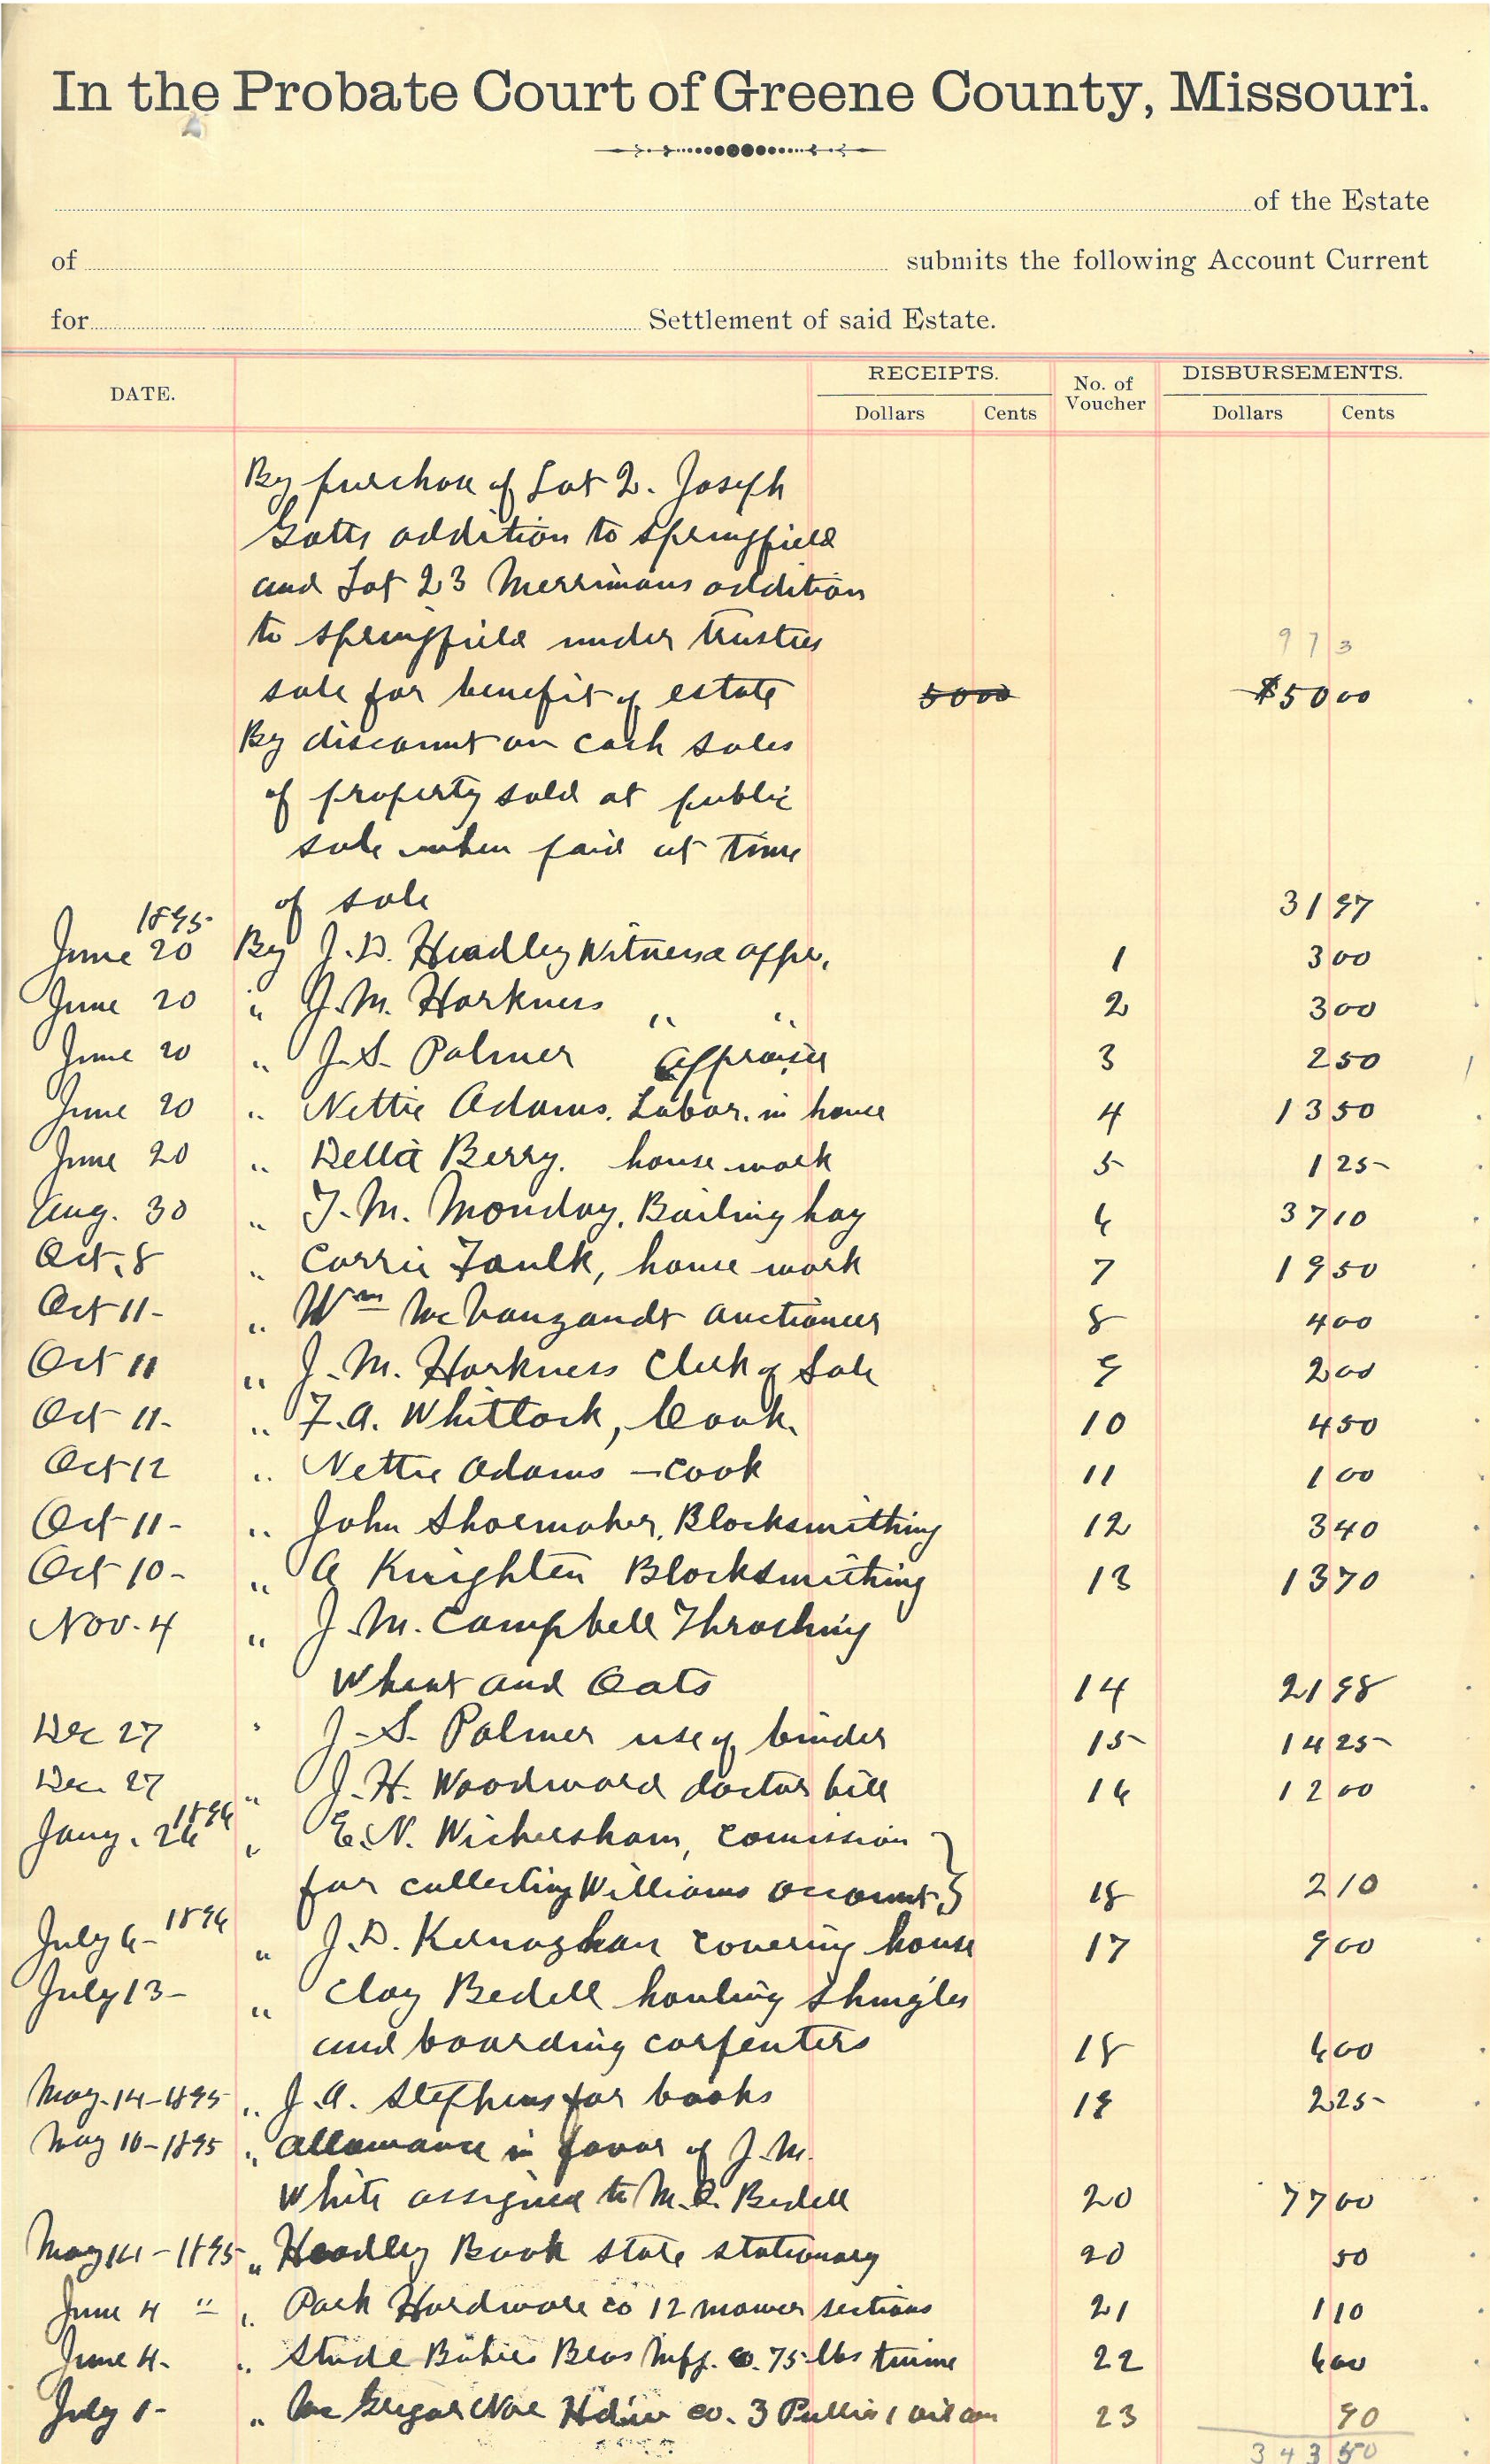 In the Probate Court of Greene County, Missouri.
of the Estate
of submits the following Account Current
for Settlement of said Estate.
DATE. RECEIPTS. No. of Voucher DISBURSEMENTS.
Dollars Cents Dollars Cents
By purchase of Lot 2. Joseph
Gotts addition to Springfield
and Lot 23 Merrimans addition
to Springfield under trustees 973
sale for benefit of estate 5000 $5000
By discount on cash sales
of property sold at public
sale when paid at time
of sale 3197
1895
June 20 By J.D. Headley Witness appr. 1 300
June 20 " J.M. Harkness " " 2 300
June 20 " J.S. Palmer appraiser 3 250
June 20 " Nettie Adams. Labor. in house 4 1350
June 20 " Della Berry. house work 5 125
Aug. 30 " T.M. Monday, Bailing hay 6 3710
Oct. 8 " Carrie Faulk, house work 7 1950
Oct 11- " Wm McVanzandt auctioneer 8 400
Oct 11 " J.M. Harkness Clerk of Sale 9 200
Oct 11- " F.A. Whittock, Cook. 10 450
Oct 12 " Nettie Adams - cook 11 100
Oct 11- " John Shoemaker, Blacksmithing 12 340
Oct 10- " A Knighten Blacksmithing 13 1370
Nov. 4 " J.M. Campbell Thrashing
Wheat and Oats 14 2198
Dec 27 " J.S. Palmer use of binder 15 1425
Dec. 27 " J.H. Woodward doctor bill 16 1200
1896
Jany. 26 " E.N. Wickersham, comission
for collecting Williams account. 18 210
July 6- 1896 " J.D. Kernaghan covering house 17 900
July 13- " Clay Bedell hauling shingles
and boarding carpenters 18 600
May-14-1895 " J.A. Stephens for books 19 225
May 10-1895 " allowance in favor of J.M.
White assigned to M.R. Bedell 20 7700
May 14-1895 " Headley Book store stationary 20 50
June 4 " " Park Hardware co 12 mower sections 21 110
June 4- " Stude Bakies Bros Mfg. co. 75 lbs twine 22 600
July 1- " Mc Gregor Noe Hdw co. 3 Pullies 1 oil can 23 90
343 50